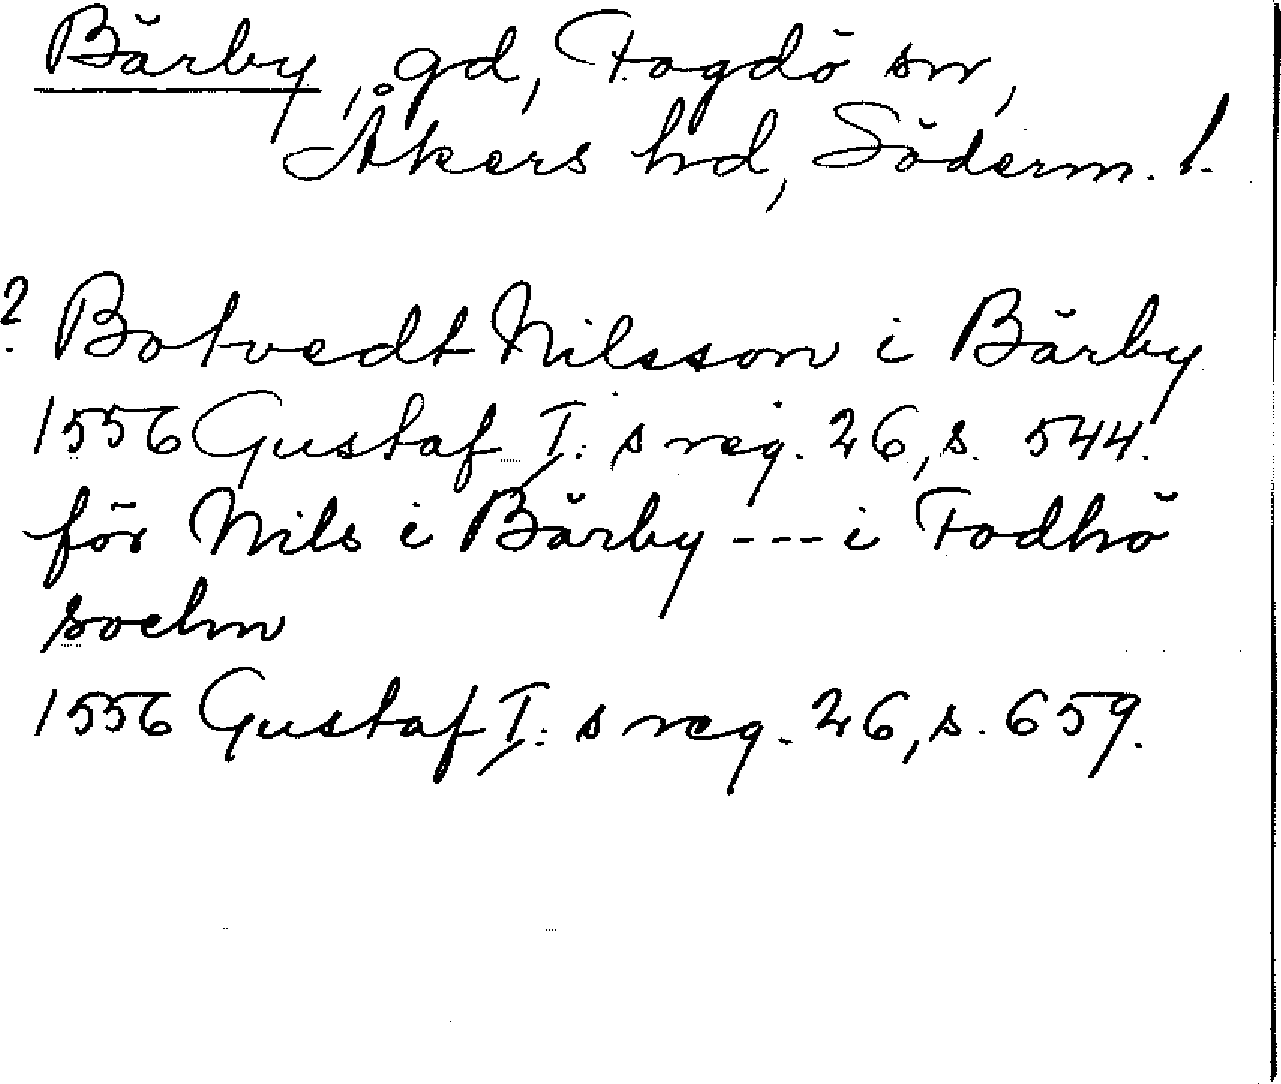 Bärby, gd, Fogdö sn,
Åkers hd, Söderm. l.
? Botvedt Nilsson i Bärby
1556 Gustaf I: s reg. 26, s. 544.
för Nils i Bärby --- i Fodhö
sochn
1556 Gustaf I: s reg. 26, s. 659.